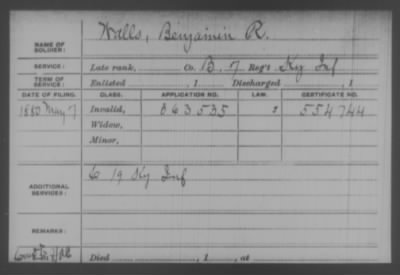 NAME OF SOLDIER: Walls, Benjamin R.
SERVICE: Late rank, Co. B, 7 Reg't Ky Inf
TERM OF SERVICE: Enlisted , 1 Discharged , 1
DATE OF FILING. CLASS. APPLICATION NO. LAW. CERTIFICATE NO.
1880 May 7 Invalid, 863535 554744
Widow,
Minor,
ADDITIONAL SERVICES: C 19 Ky Inf
REMARKS:
Died , 1 , at